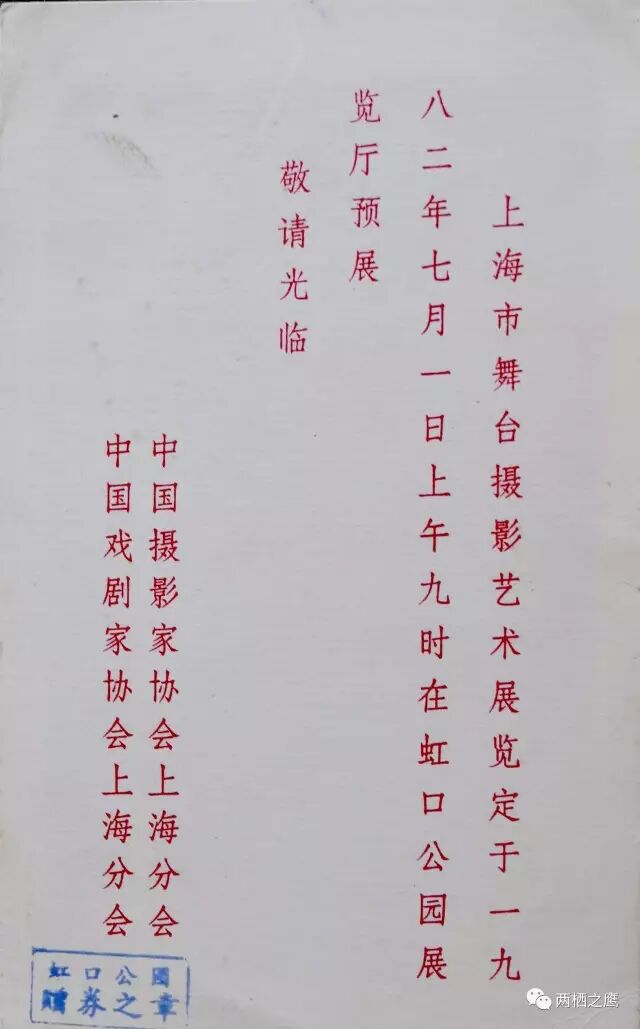 上海市舞台摄影艺术展览定于一九
八二年七月一日上午九时在虹口公园展
览厅预展
敬请光临
中国摄影家协会上海分会
中国戏剧家协会上海分会
虹口公園
贈券之章
两栖之鹰